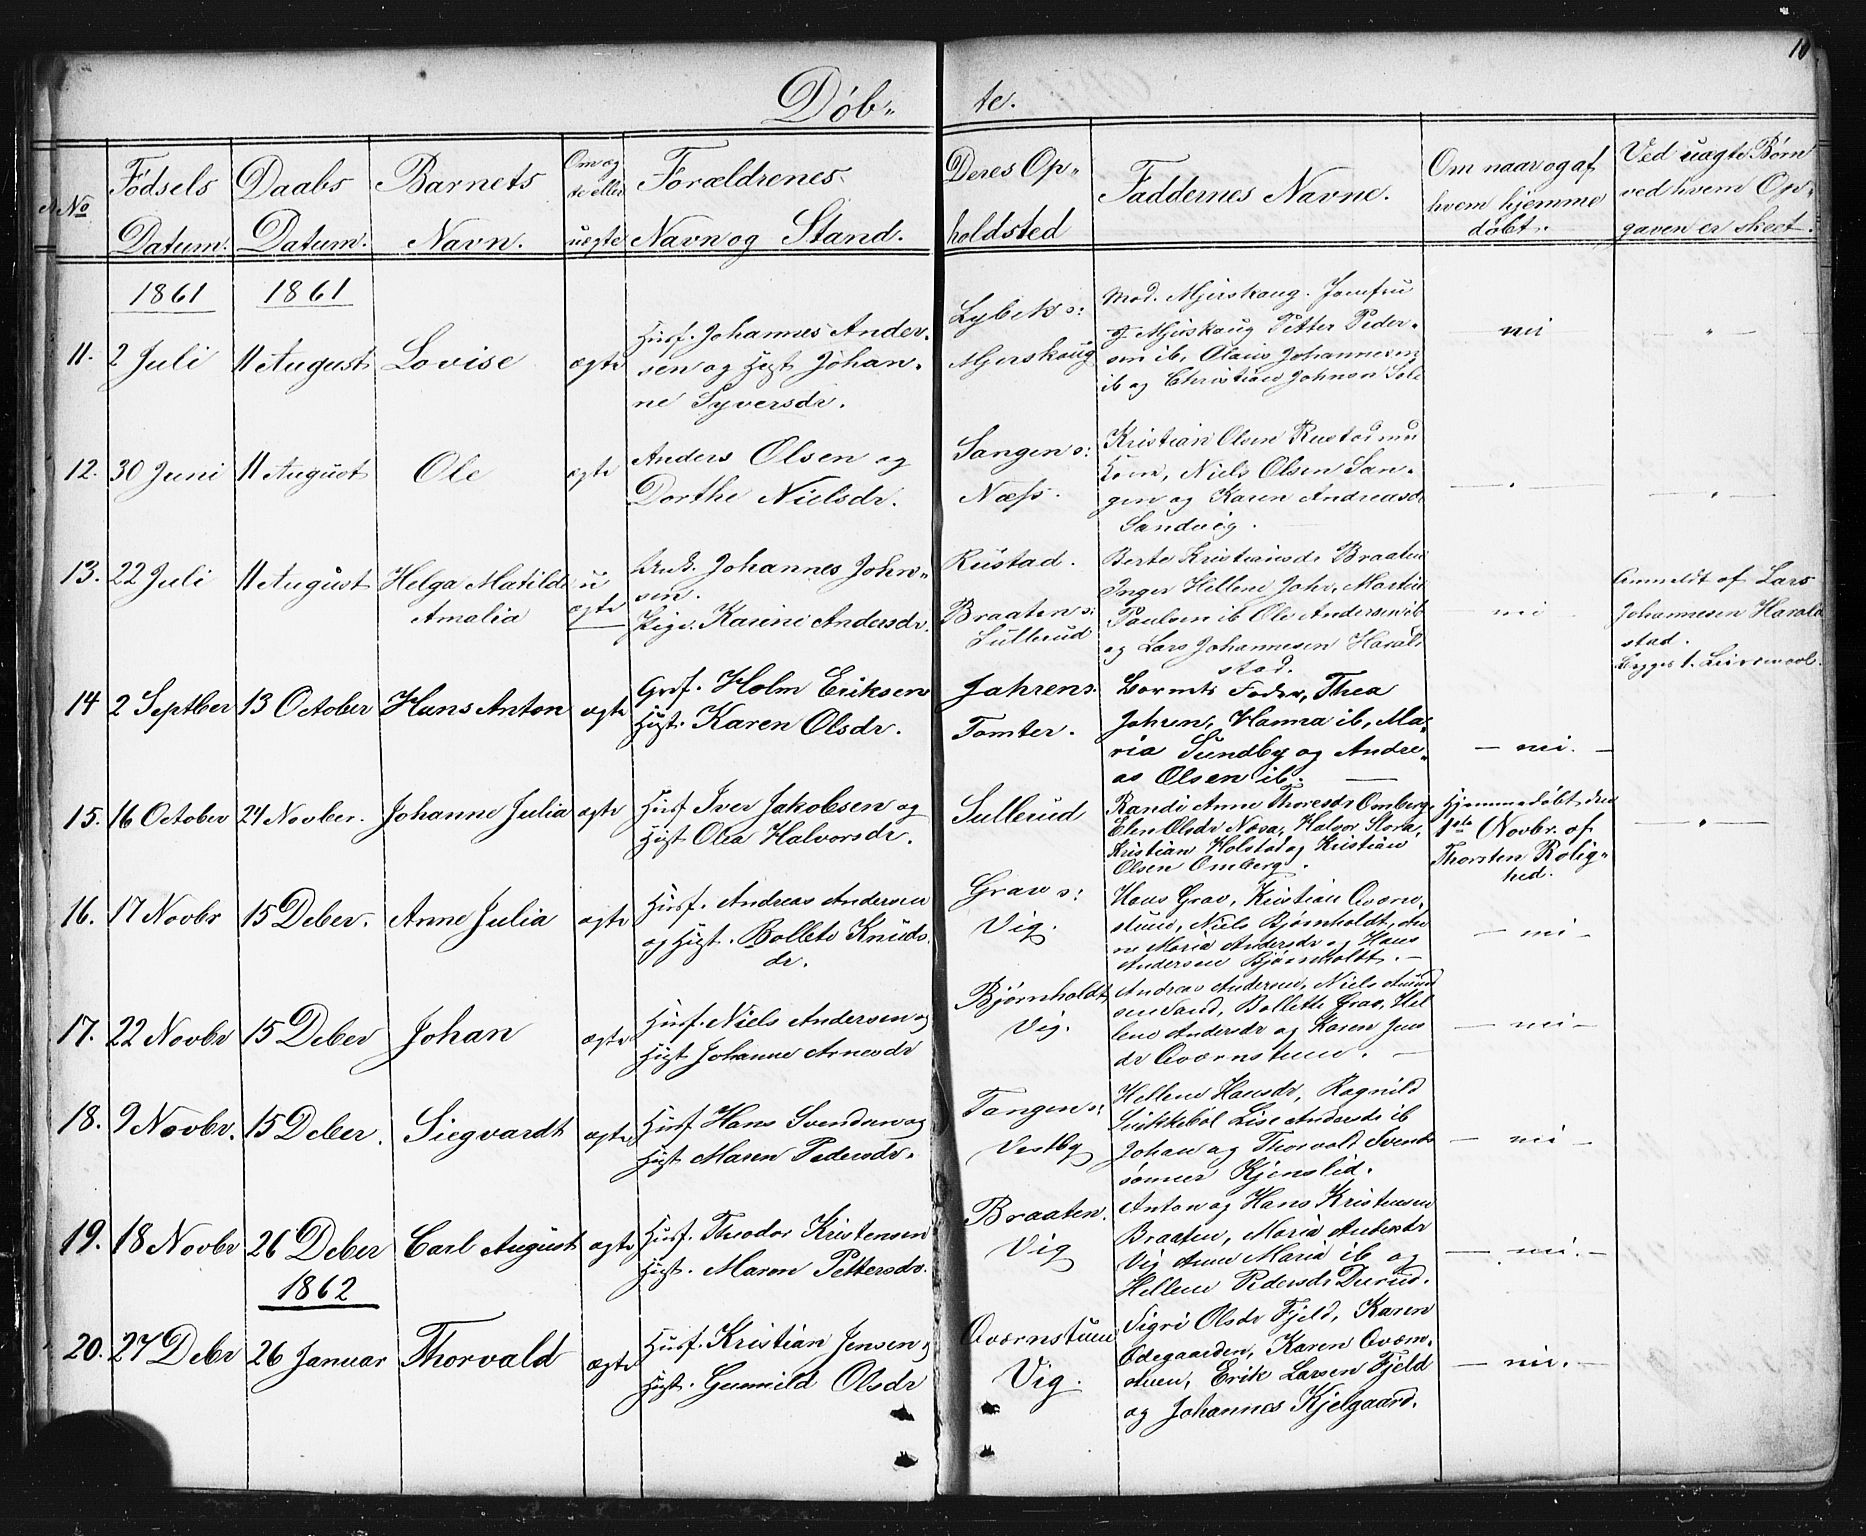 10
Döb„ te.
No
Födsels Datum.
Daabs Datum.
Barnets Navn.
Om ægte eller uægte
Forældrenes Navn og Stand.
Deres Opholdsted
Faddernes Navne.
Om naar og af hvem hjemme döbt.
Ved uægte Börn ved hvem Opgaven er skeet.
1861 1861
11. 2 Juli 11 August Lovise ægte
Husf. Johannes Ander„
sen og Hust Johan„
ne Syversdr.
Lybek s:
Mjerskoug
Mad. Mjerskoug. Jomfru
Mjerskoug Petter Peder„
sen ib, Olaus Johannesen
ib og Christian Johnsen
nei
12. 30 Juni 11 August Ole ægte
Anders Olsen og
Dorthe Nielsdr.
Sangen s:
Næss.
Kristian Olsen Rustad
Niels Olsen San„
gen og Karen Andreasdr
Sandvig.
13. 22 Juli 11 August Helga Matilde
Amalia
u
ægte
Johannes John„
sen.
Pige. Karine Andersdr.
Rustad.
Braaten s:
Sullerud
Berte Kristiansdr Braaten
Inger Hellene Johr, Martin
Paulsen ib Ole Andersen ib
og Lars Johannesen Harald
stad.
nei
Anmeldt af Lars
Johannesen Harald
stad.
14 2 Septber 13 October Hans Anton ægte
Holm Eriksen
Hust. Karen Olsdr.
Jahren s.
Tomter.
Barnets Fader, Thea
Jahren, Hanna ib, Ma„
ria Sundby og Andre„
as Olsen ib.
— nei. —
15. 16 October 24 Novber. Johanne Julia ægte
Husf Iver Jakobsen og
Hust Olea Halvorsdr.
Sullerud
Randi Anne Thoresdr Omberg,
Elen Olsdr Næsa, Halvor Stora,
Kristian Holstad og Kristian
Olsen Omberg.
Hjemmedöbt den
1ste Novbr. af
Thorsten Rolig„
hed.
16. 17 Novbr 15 Deber. Anne Julia ægte
Husf. Andreas Andersen
og Hust. Bollete Knuds
dr.
Grav s:
Vig.
Hans Grav, Kristian Oværn„
stuen, Niels Björnholdt, An
ne Maria Andersdr og Hans
Andersen Björnholdt. —
— nei —
17. 22 Novbr 15 Deber Johan ægte
Husf. Niels Andersen og
Hust Johanne Arnesdr
Björnholdt
Vig.
Andreas Andersen, Niels
Bollette Grav, Hel
lene Andersdr og Karen Jens
dr Oværnstuen. —
— nei —
18. 9 Novbr. 15 Deber. Siegvardt ægte
Husf Hans Svendsen og
Hust Maren Pedersdr.
Tangen s:
Vestby
Hellene Hansdr, Ragnild
Lise Andersdr ib
Johan og Thorvald Svends
sönner Kjenslid.
— nei —
19. 18 Novbr 26 Deber Carl August ægte
Husf. Theodor Kristensen
Hust. Maren Pettersdr.
Braaten.
Vig
Anton og Hans Kristensen
Braaten, Maria
Vig Anne Maria ib og
Hellene Pedersdr Durud.
— nei. —
1862
20. 27 Debr 26 Januar Thorvald ægte
Husf. Kristian Jensen og
Hust. Gunnild Olsdr
Oværnstuen
Vig.
Sigri Olsdr Fjeld, Karen
Ödegaarden, Karen Oværn„
stuen, Erik Larsen Fjeld
og Johannes Kjelgaard.
— nei. —